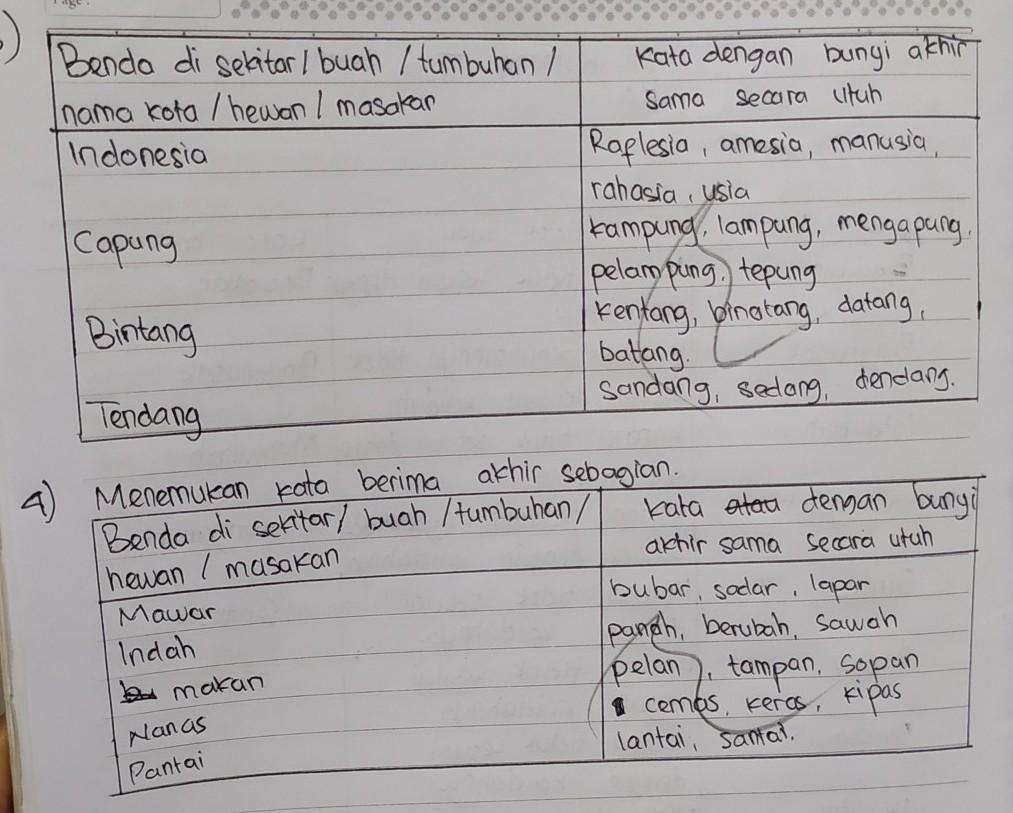 Page :
)
Benda di sekitar / buah / tumbuhan /
nama kota / hewan / masakan
Kata dengan bungi akhir
sama secara utuh
Indonesia
Raflesia, amesia, manusia,
rahasia, usia
Capung
kampung, lampung, mengapung,
pelampung, tepung
Bintang
kentang, binatang, datang,
batang.
Tendang
sandang, sedang, dendang.
4) Menemukan kata berima akhir sebagian.
Benda di sekitar / buah / tumbuhan /
hewan / masakan
kata atau dengan bungi
akhir sama secara utuh
Mawar
bubar, sadar, lapar
Indah
panah, berubah, sawah
makan
pelan, tampan, sopan
Nanas
cemas, keras, kipas
Pantai
lantai, santai.